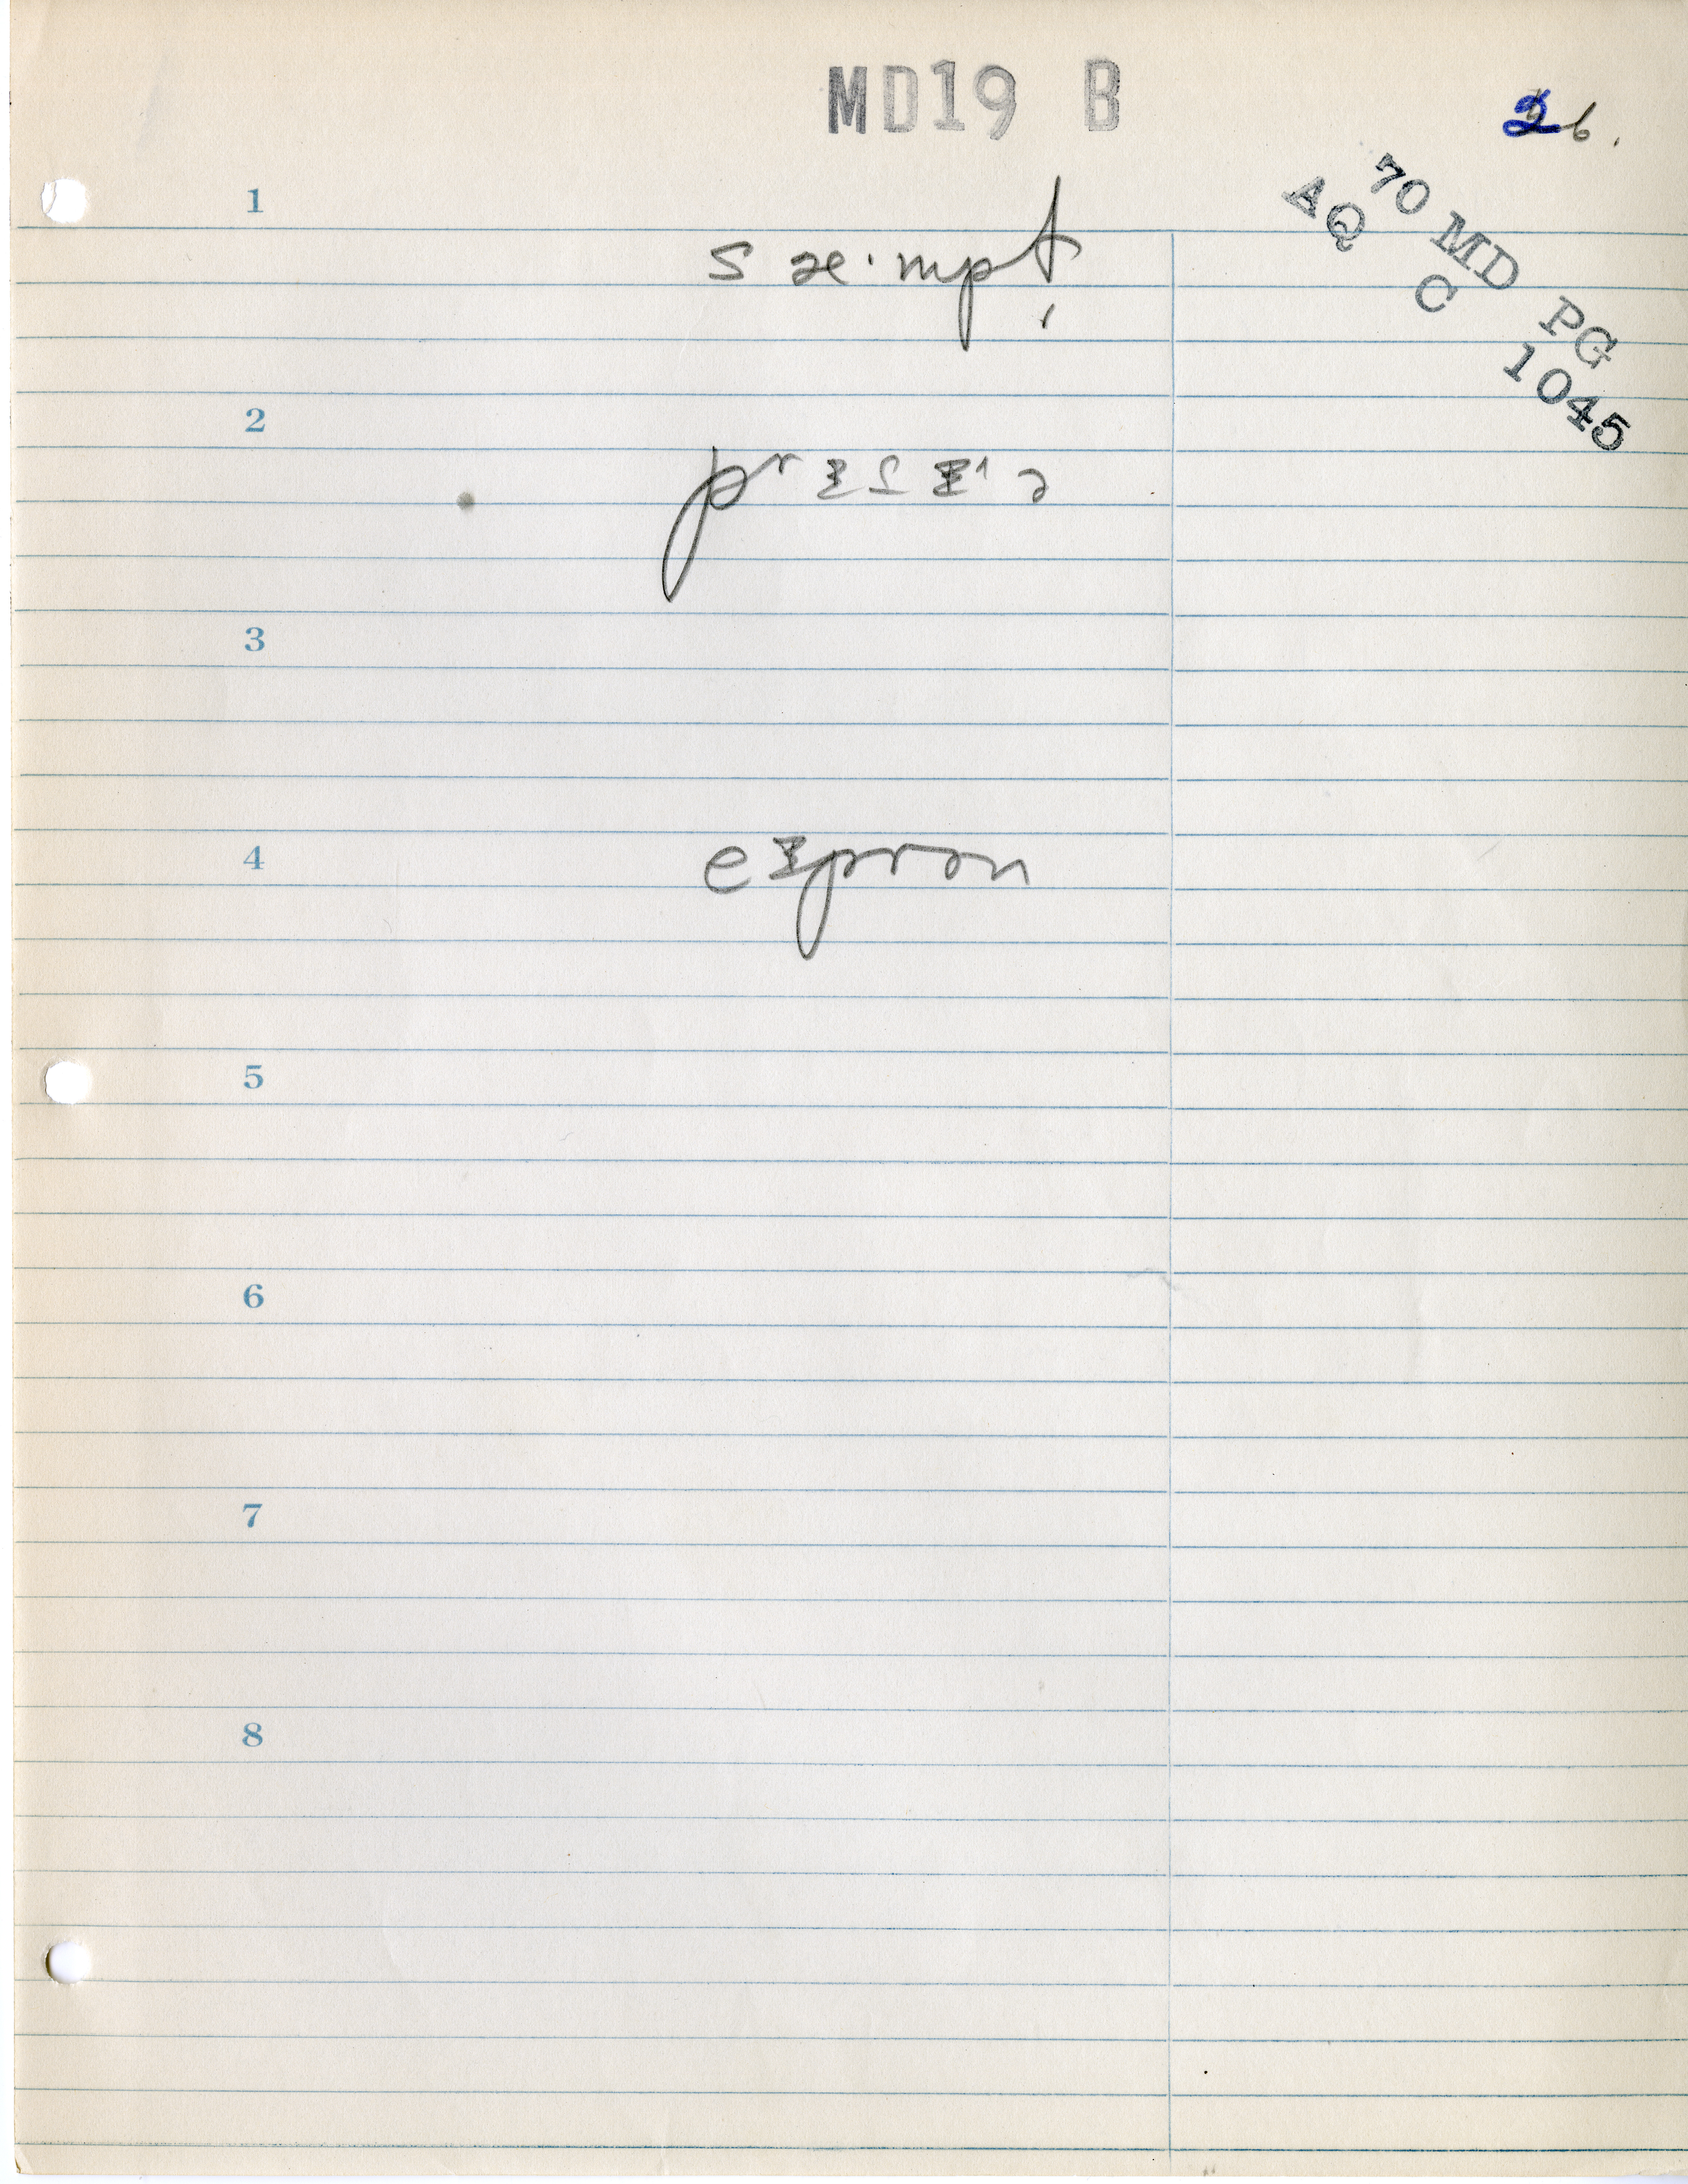 MD19 B
26.
70 MD PG
AQ C 1045
1
s æ·mpt
2
3
4
eᵻprən
5
6
7
8